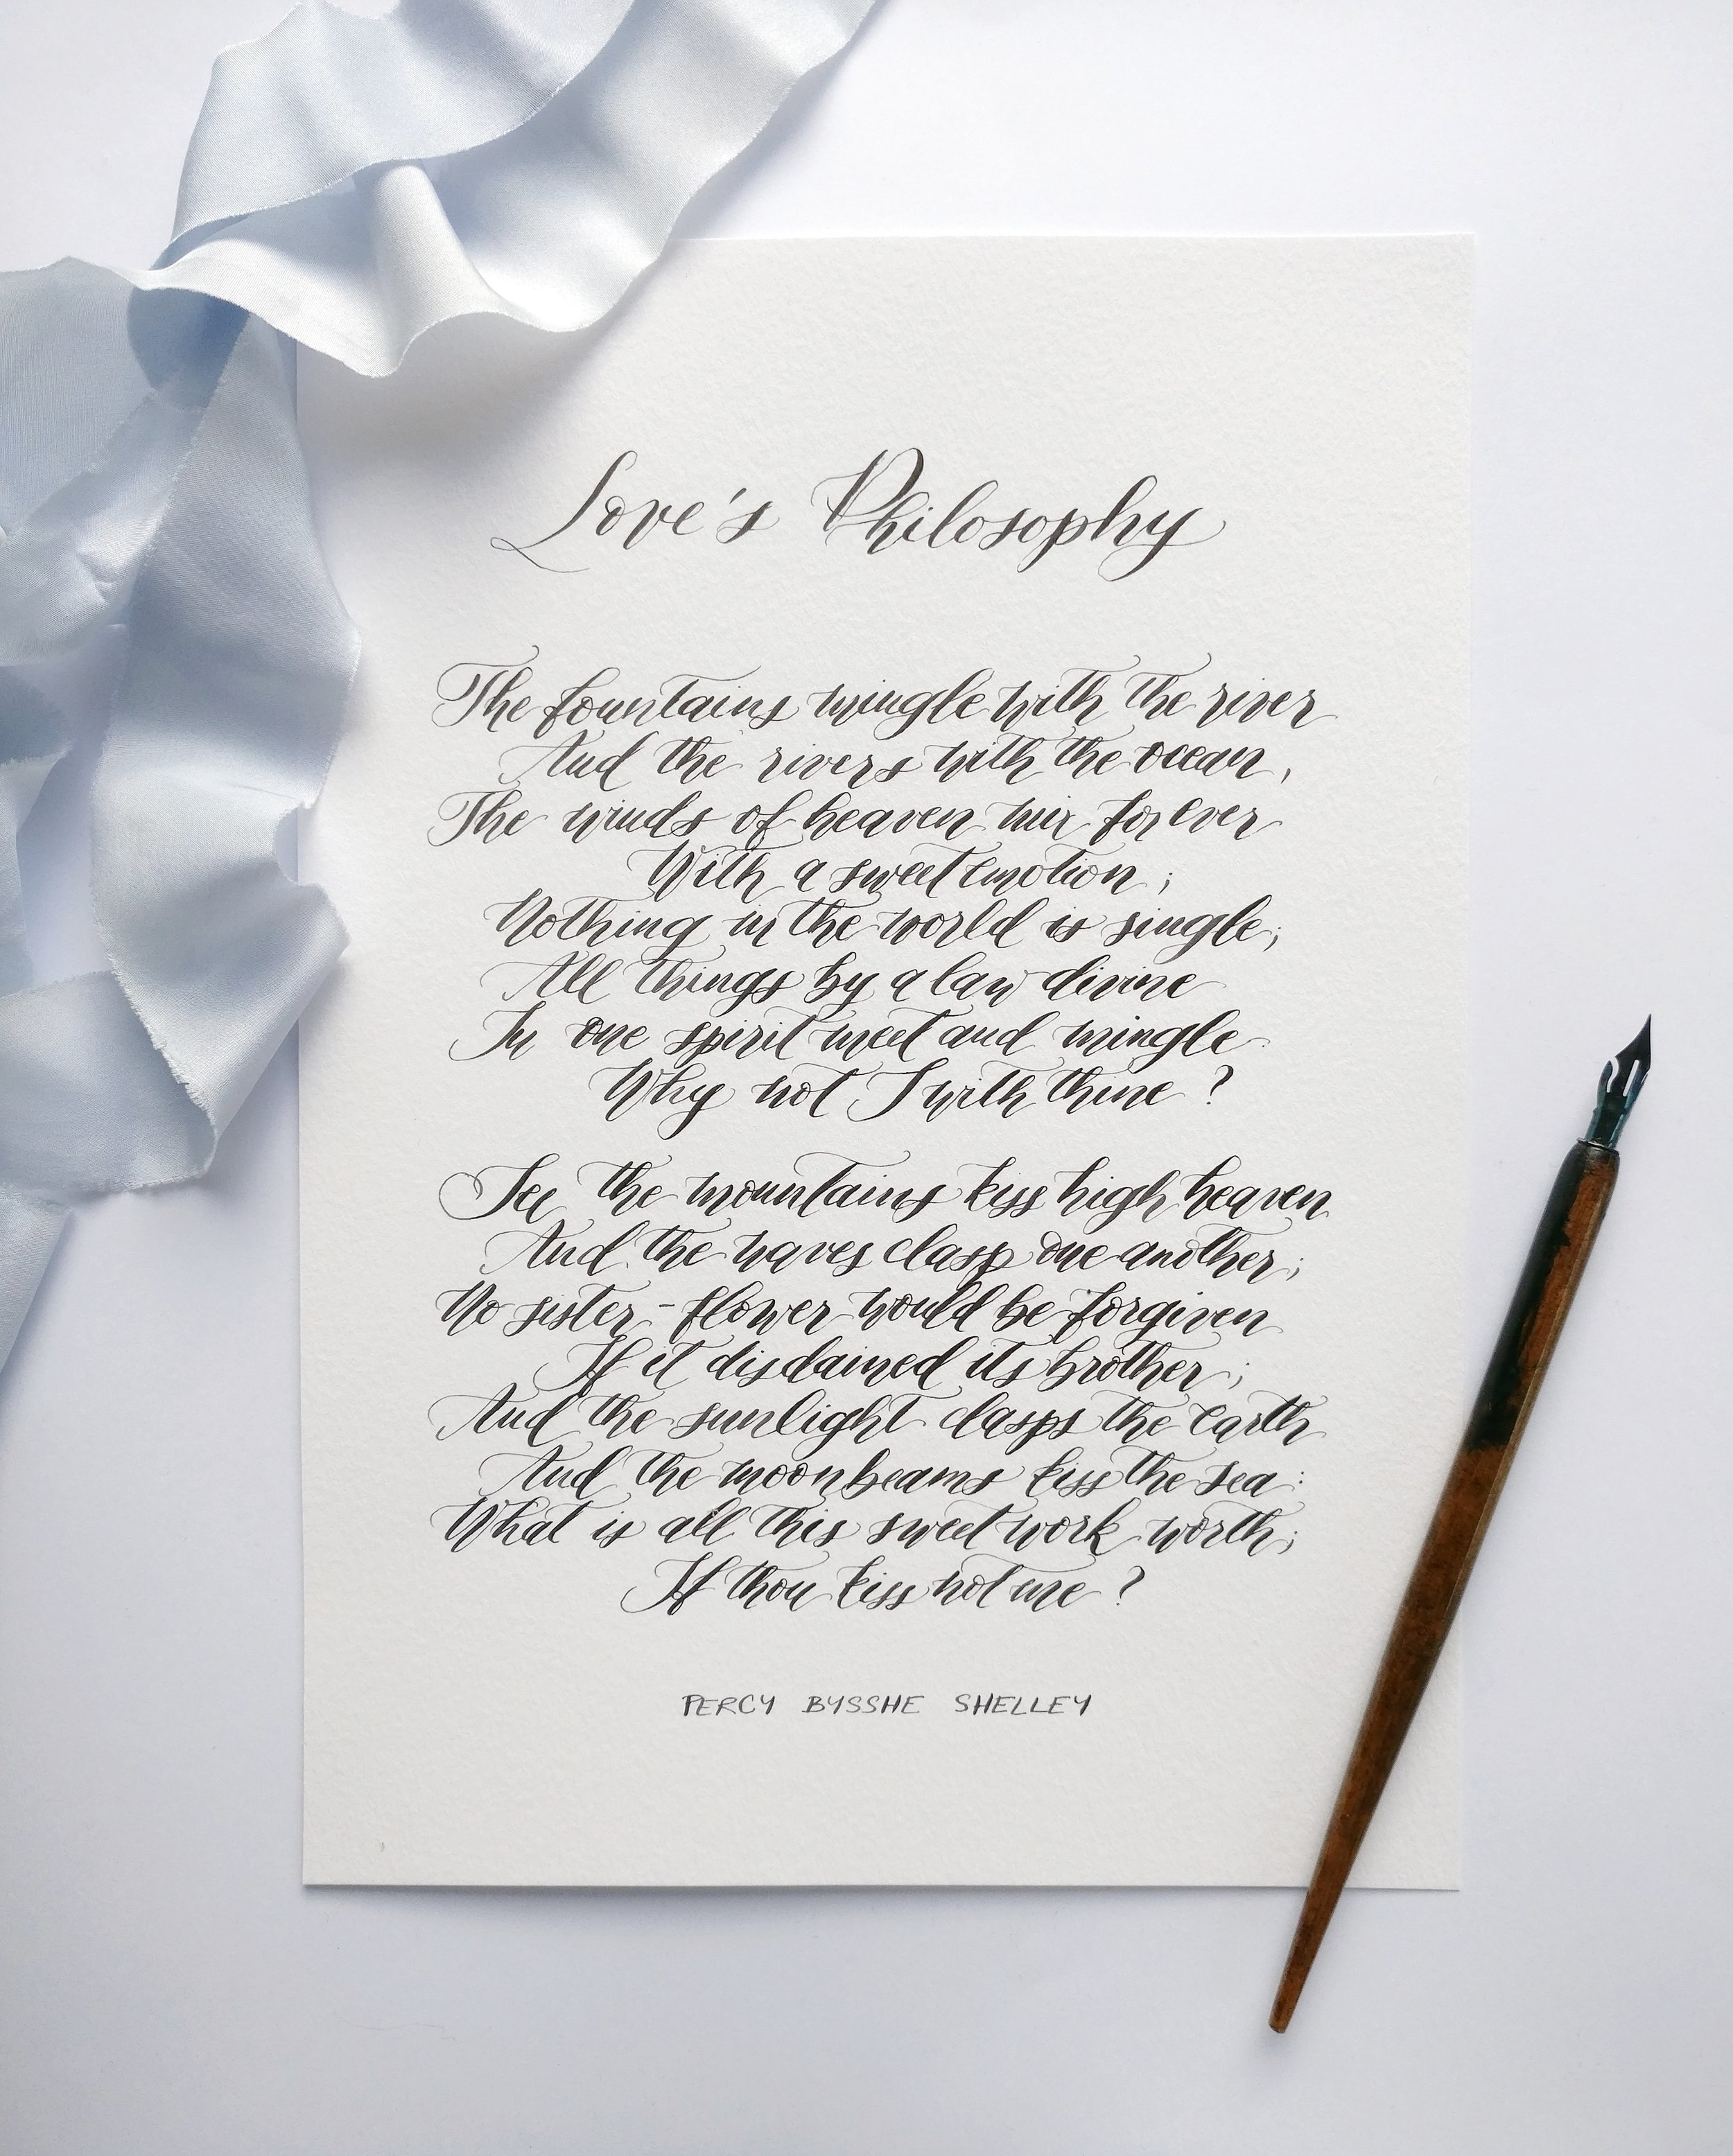 Love's Philosophy
The fountains mingle with the river
And the rivers with the ocean,
The winds of heaven mix for ever
With a sweet emotion;
Nothing in the world is single;
All things by a law divine
In one spirit meet and mingle.
Why not I with thine?
See the mountains kiss high heaven
And the waves clasp one another;
No sister-flower would be forgiven
If it disdained its brother;
And the sunlight clasps the earth
And the moonbeams kiss the sea:
What is all this sweet work worth;
If thou kiss not me?
PERCY BYSSHE SHELLEY